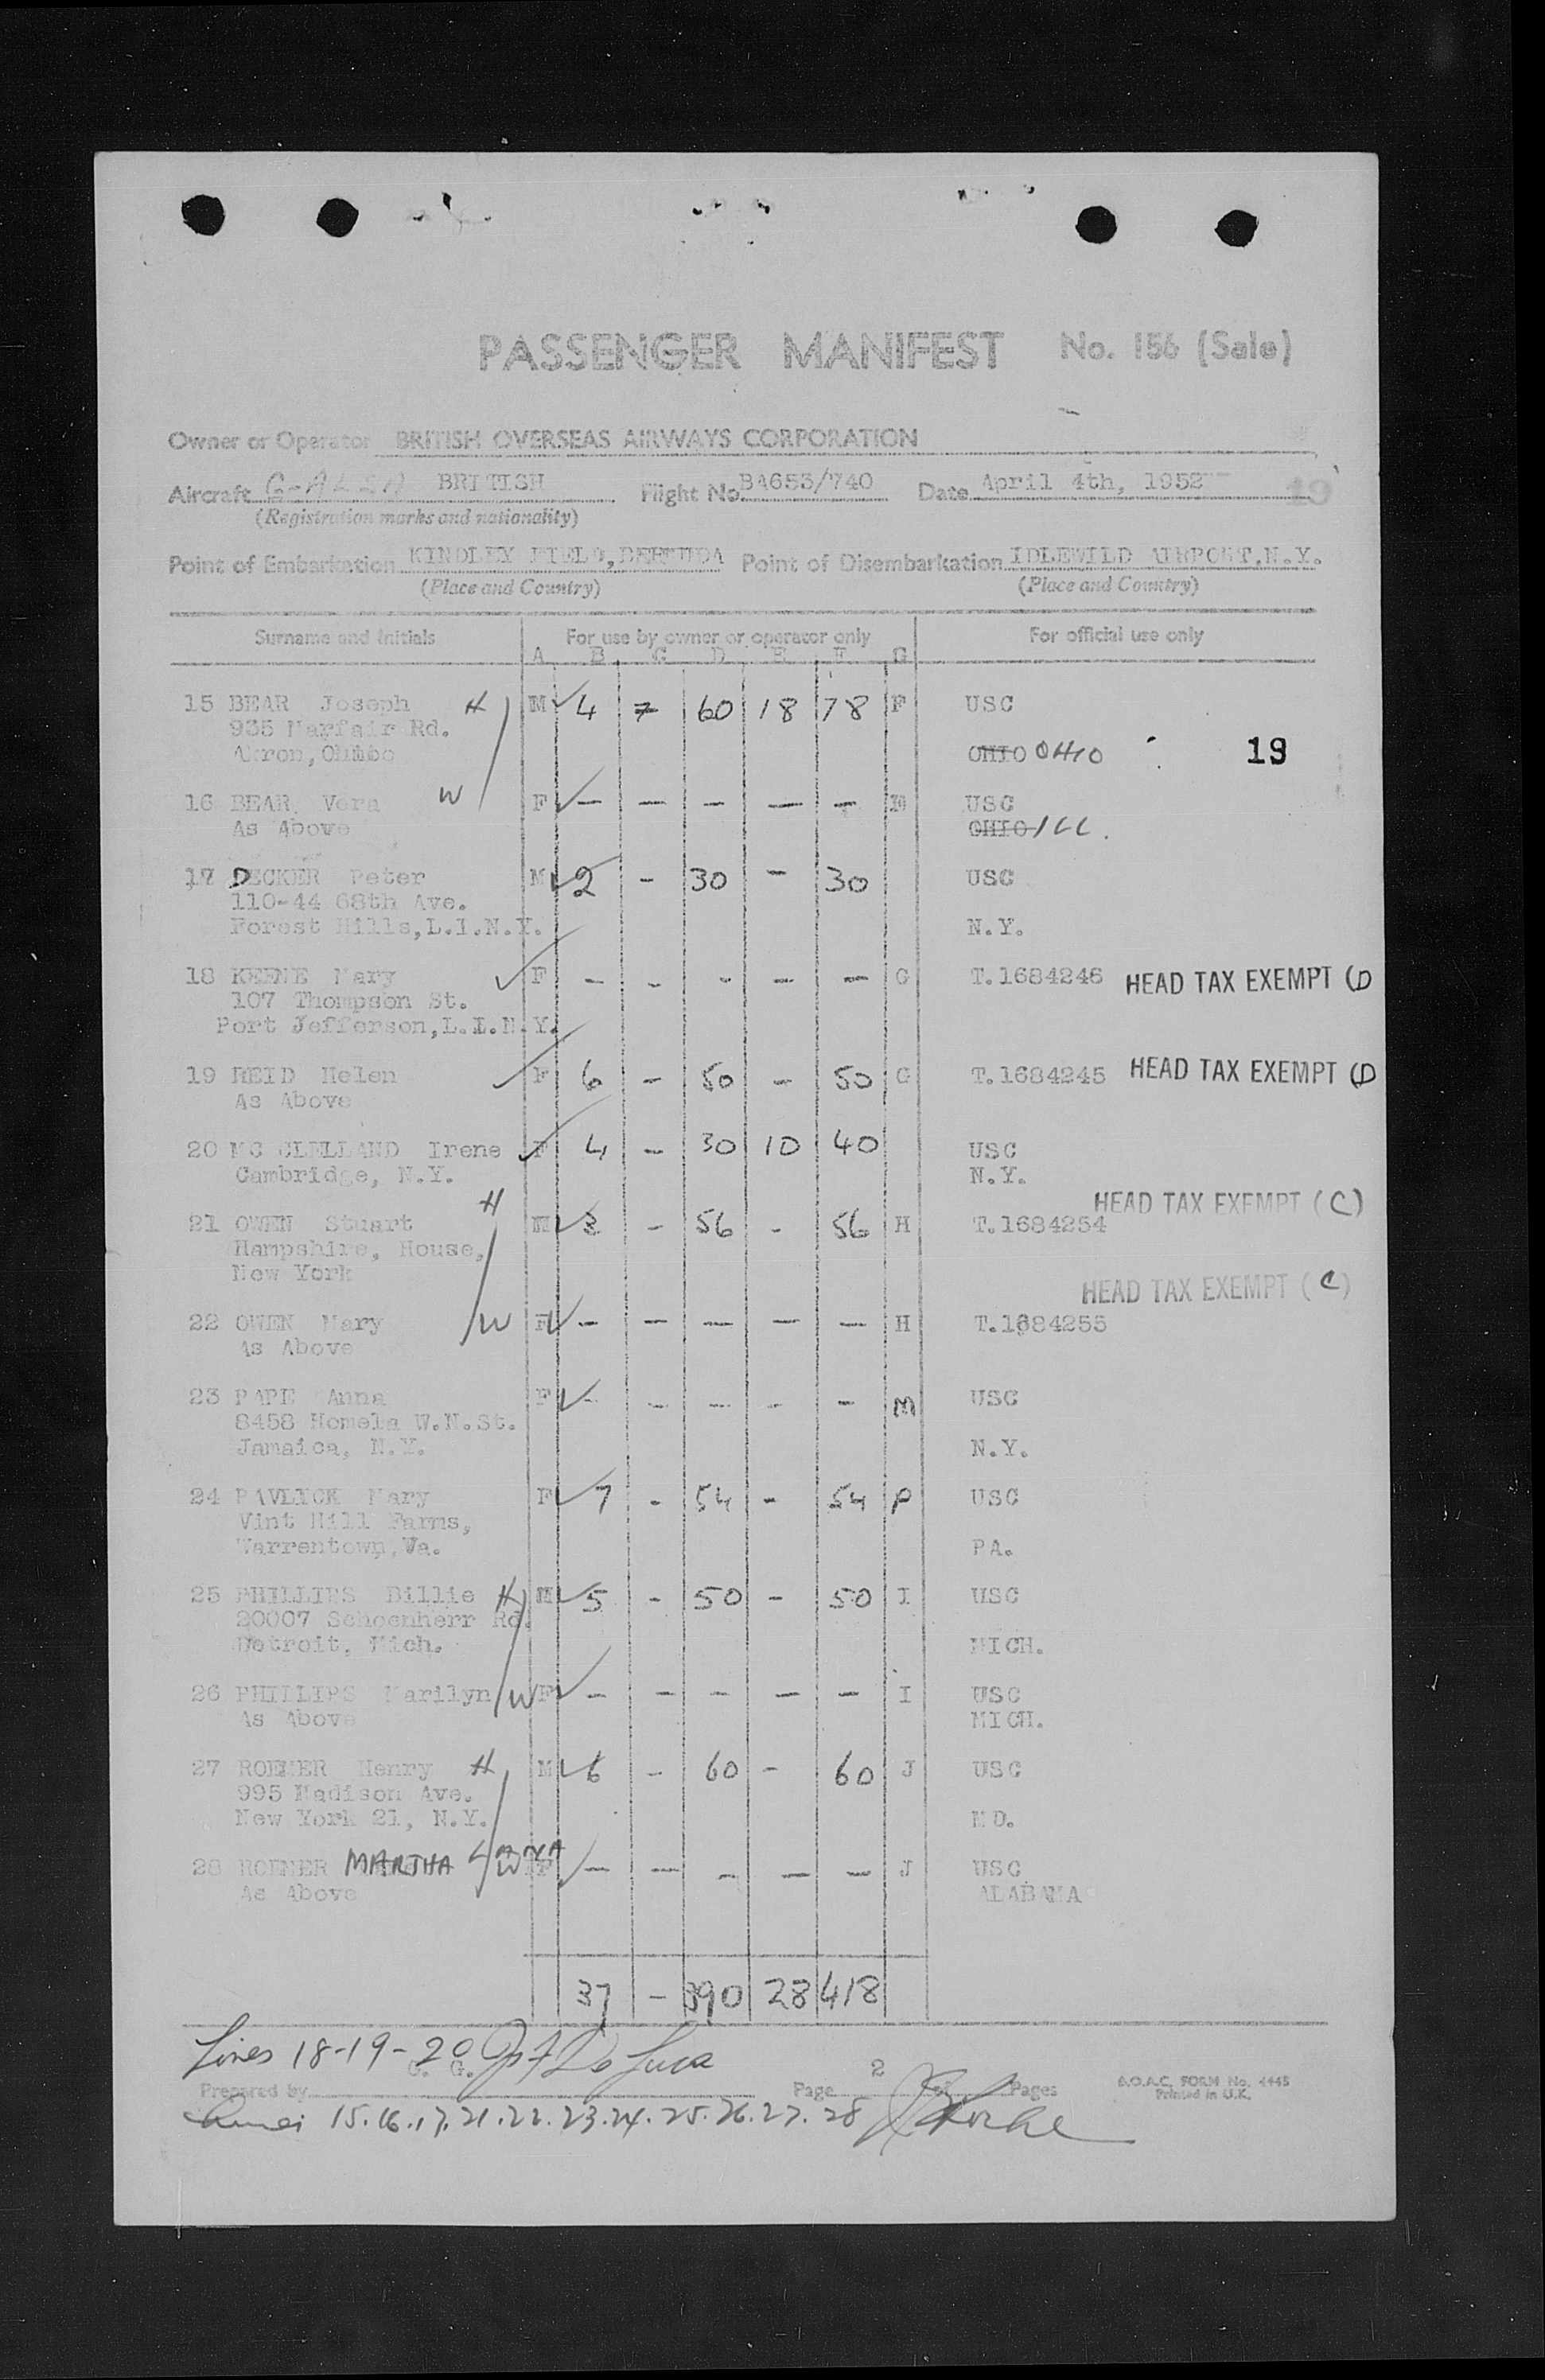 PASSENGER MANIFEST No. 156 (Sale)
Owner or Operator BRITISH OVERSEAS AIRWAYS CORPORATION
Aircraft G-ALSA BRITISH Flight No. BA653/740 Date April 4th, 1952 19
(Registration marks and nationality)
Point of Embarkation KINDLEY FIELD, BERMUDA Point of Disembarkation IDLEWILD AIRPORT, N.Y.
(Place and Country) (Place and Country)
Surname and Initials For use by owner or operator only For official use only
A B C D E F G
15 BEAR Joseph H M 4 - 60 18 78 F USC
935 Rd.
Akron, OHIO OHIO 19
16 BEAR Vera W F - - - - - USC
As Above OHIO ILL.
17 DECKER Peter M 2 - 30 - 30 USC
110-44 68th Ave.
Forest Hills, L.I.N.Y. N.Y.
18 KEENE Mary F - - - - - G T.1684246 HEAD TAX EXEMPT (D
107 Thompson St.
Port Jefferson, L.I.N.Y.
19 REID Helen F 6 - 50 - 50 G T.1684245 HEAD TAX EXEMPT (D
As Above
20 MC CLELLAND Irene F 4 - 30 10 40 USC
Cambridge, N.Y. N.Y.
HEAD TAX EXEMPT (C)
21 OWEN Stuart H M 3 - 56 - 56 H T.1684254
Hampshire, House,
New York
HEAD TAX EXEMPT (C)
22 OWEN Mary W F - - - - - H T.1684255
As Above
23 PAPE Anna F - - - - - M USC
8458 Homela W.N.St.
Jamaica, N.Y. N.Y.
24 PAVLICK Mary F 7 - 54 - 54 P USC
Vint Hill Farms,
Warrentown, Va. PA.
25 PHILLIPS Billie H M 5 - 50 - 50 I USC
20007 Schoenherr Rd.
Detroit, Mich. MICH.
26 PHILLIPS Marilyn W F - - - - - I USC
As Above MICH.
27 ROEMER Henry H M 6 - 60 - 60 J USC
995 Madison Ave.
New York 21, N.Y. MD.
28 ROEMER MARTHA W F - - - - - J USC
As Above ALABAMA
37 - 390 28 418
Lines 18-19-20 De Luca
Prepared by G. G. Page 2 of Pages B.O.A.C. FORM No. 4445
Printed in U.K.
15.16.17.21.22.23.24.25.26.27.28